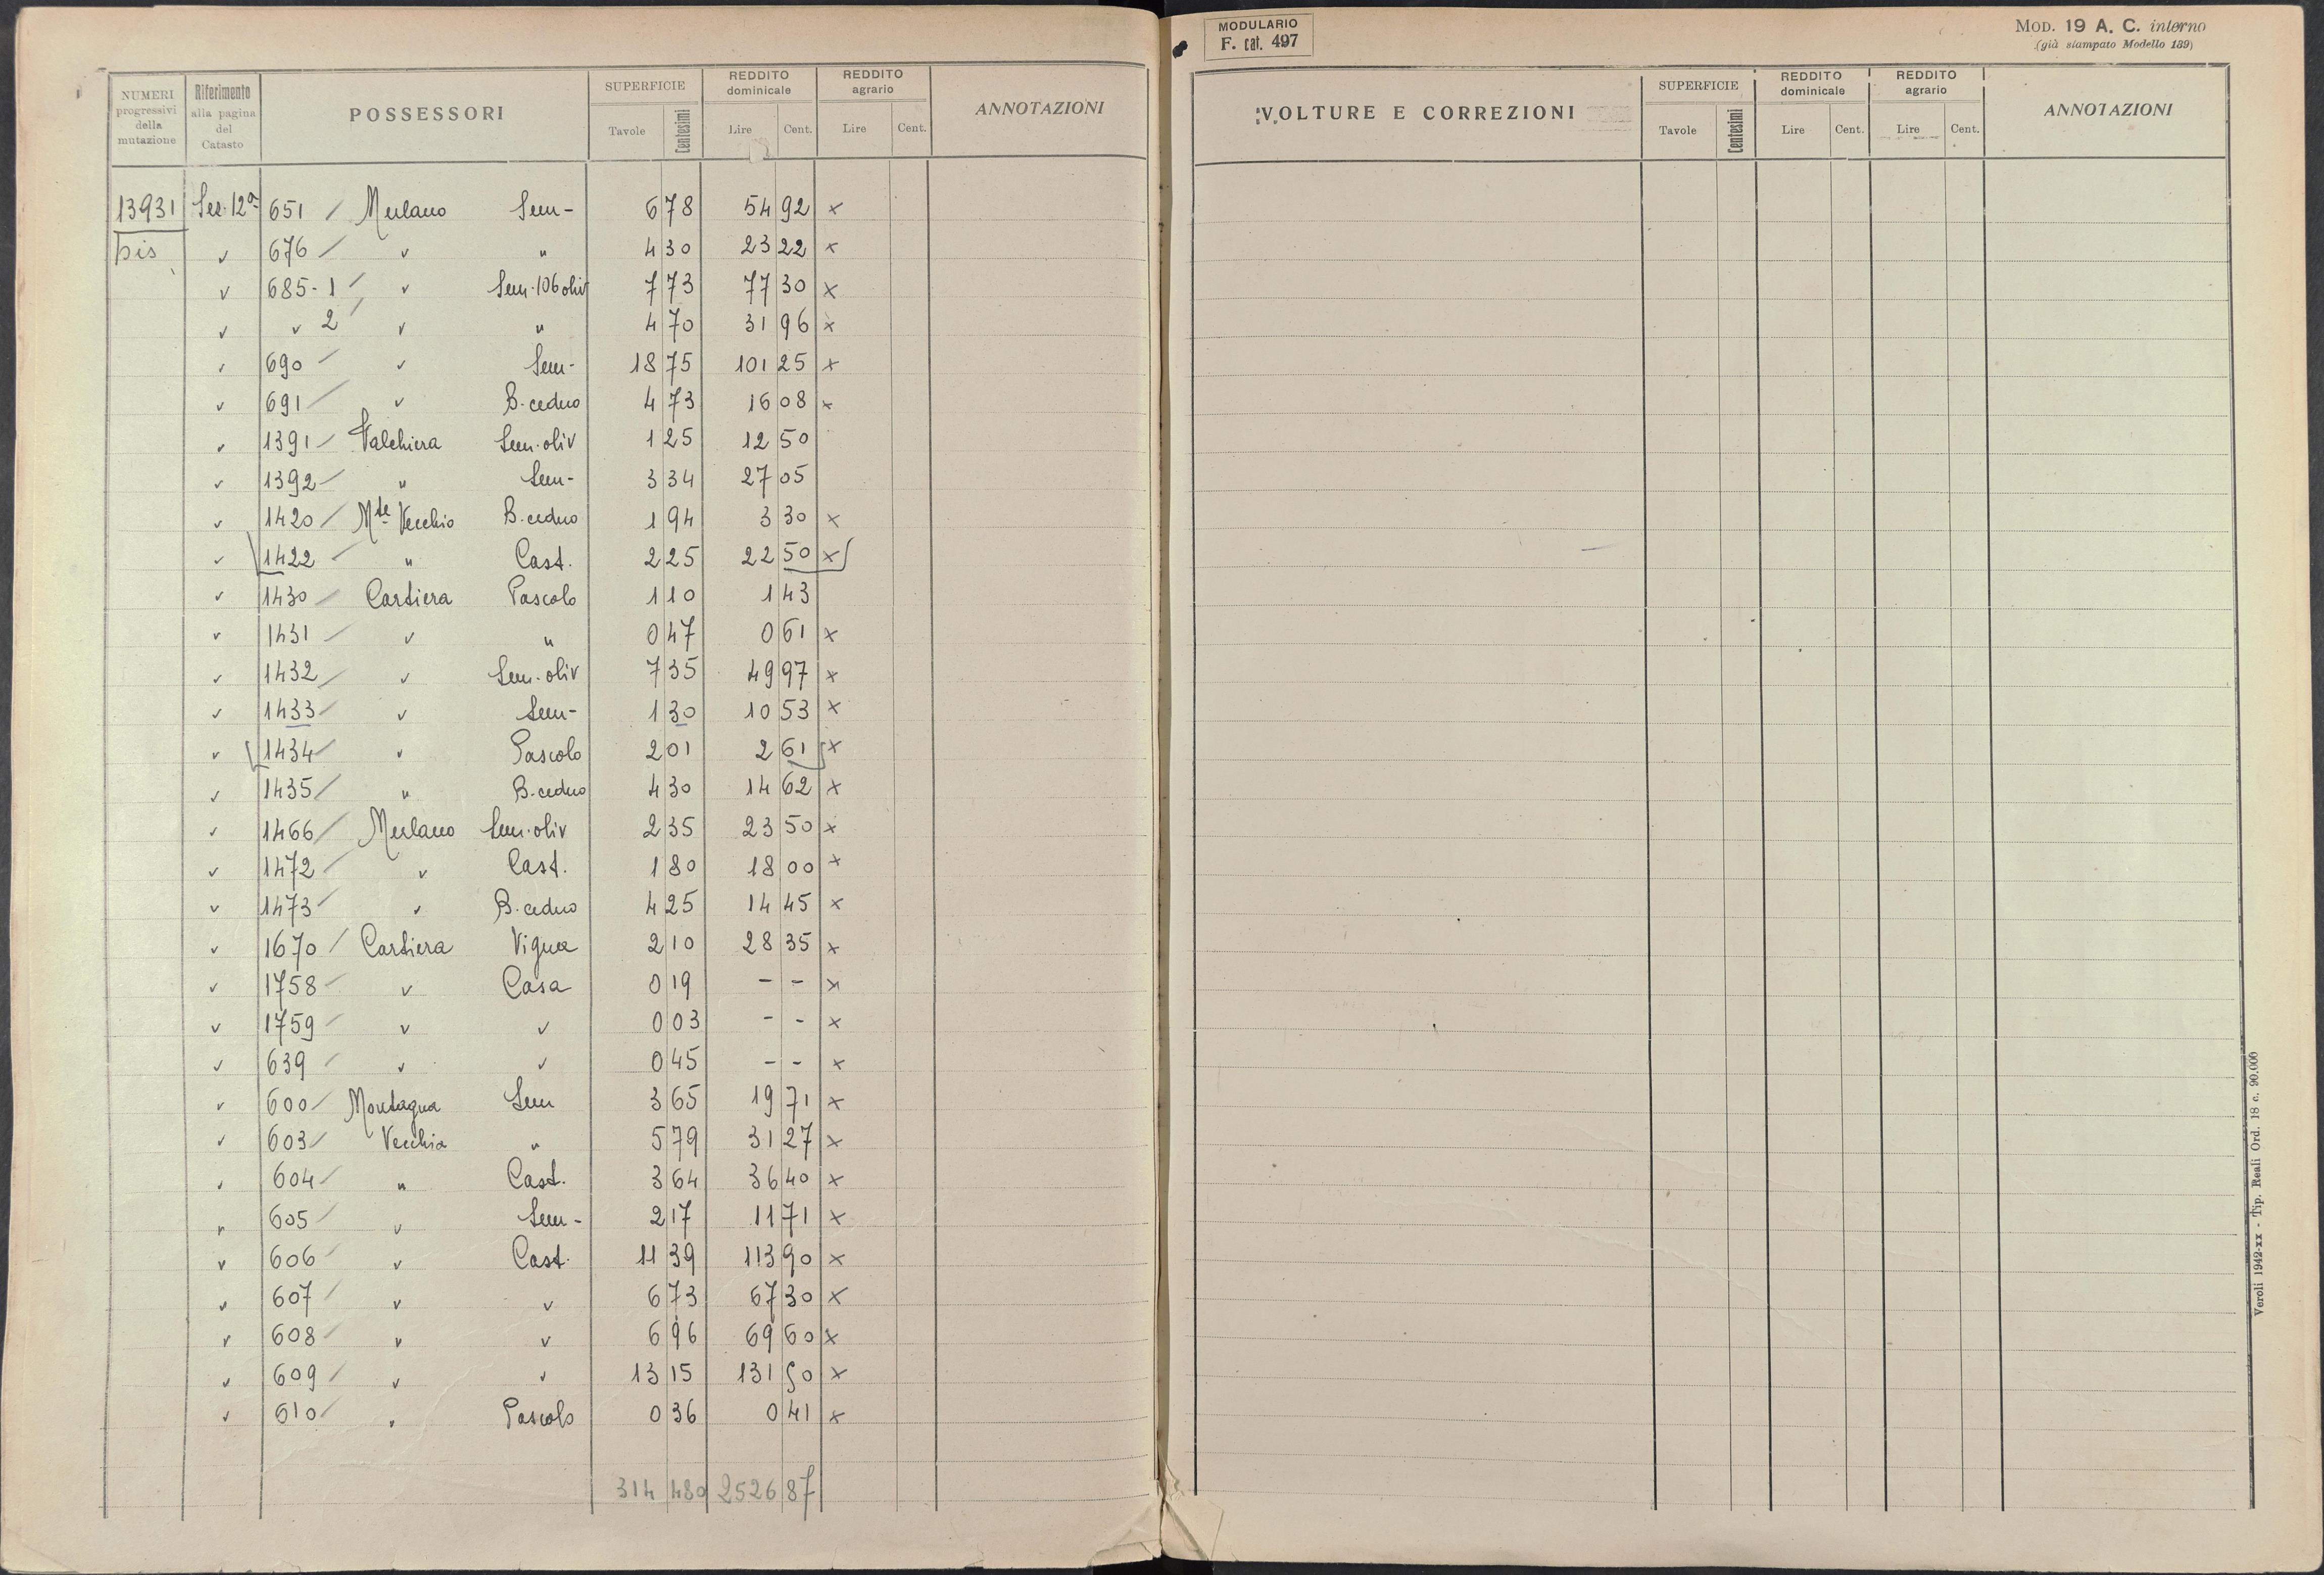 NUMERI progressivi della mutazione | Riferimento alla pagina del Catasto | POSSESSORI | SUPERFICIE Tavole Centesimi | REDDITO dominicale Lire Cent. | REDDITO agrario Lire Cent. | ANNOTAZIONI
13931 Sez. 12ª 651 / Merlano Sem- 6 78 54 92 x
bis v 676 / v " 4 30 23 22 x
v 685-1 / v Sem. 106 oliv 7 73 77 30 x
v v 2 / v " 4 70 31 96 x
v 690 / v Sem- 18 75 101 25 x
v 691 / v B. ceduo 4 73 16 08 x
v 1391 / Valchiera Sem. oliv 1 25 12 50
v 1392 / " Sem- 3 34 27 05
v 1420 / Mte Vecchio B. ceduo 1 94 3 30 x
v 1422 / " Cast. 2 25 22 50 x
v 1430 / Cartiera Pascolo 1 10 1 43
v 1431 / v " 0 47 0 61 x
v 1432 / v Sem. oliv 7 35 49 97 x
v 1433 / v Sem- 1 30 10 53 x
v 1434 / v Pascolo 2 01 2 61 x
v 1435 / " B. ceduo 4 30 14 62 x
v 1466 / Merlano Sem. oliv 2 35 23 50 x
v 1472 / v Cast. 1 80 18 00 x
v 1473 / v B. ceduo 4 25 14 45 x
v 1670 / Cartiera Vigna 2 10 28 35 x
v 1758 / v Casa 0 19 - - x
v 1759 / v v 0 03 - - x
v 639 / v v 0 45 - - x
v 600 / Montagna Sem 3 65 19 71 x
v 603 / Vecchia " 5 79 31 27 x
v 604 / " Cast. 3 64 36 40 x
v 605 / v Sem- 2 17 11 71 x
v 606 / v Cast. 11 39 113 90 x
v 607 / v v 6 73 67 30 x
v 608 / v v 6 96 69 60 x
v 609 / v v 13 15 131 50 x
v 610 / v Pascolo 0 36 0 41 x
314 480 2526 87
MODULARIO
F. cat. 497
MOD. 19 A. C. interno
(già stampato Modello 139)
VOLTURE E CORREZIONI | SUPERFICIE Tavole Centesimi | REDDITO dominicale Lire Cent. | REDDITO agrario Lire Cent. | ANNOTAZIONI
Veroli 1942-XX - Tip. Reali Ord. 18 c. 90.000